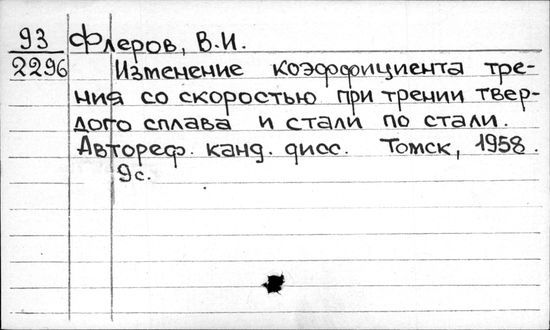 93 Флеров, В.И.
2296 Изменение коэффициента тре-
ния со скоростью при трении твер-
дого сплава и стали по стали.
Автореф. канд. дисс. Томск, 1958.
9с.